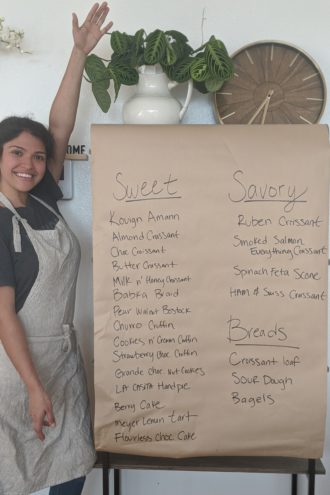 OME
Sweet
Kouign Amann
Almond Croissant
Choc Croissant
Butter Croissant
Milk n' Honey Croissant
Babka Braid
Pear Walnut Bostock
Churro Cruffin
Cookies n' Cream Cruffin
Strawberry Choc Cruffin
Grande Choc Nut Cookies
LPT CASITA Handpie
Berry Cake
Meyer Lemon tart
Flourless Choc Cake
Savory
Ruben Croissant
Smoked Salmon
Everything Croissant
Spinach Feta Scone
HAM & Swiss Croissant
Breads
Croissant loaf
Sour Dough
Bagels